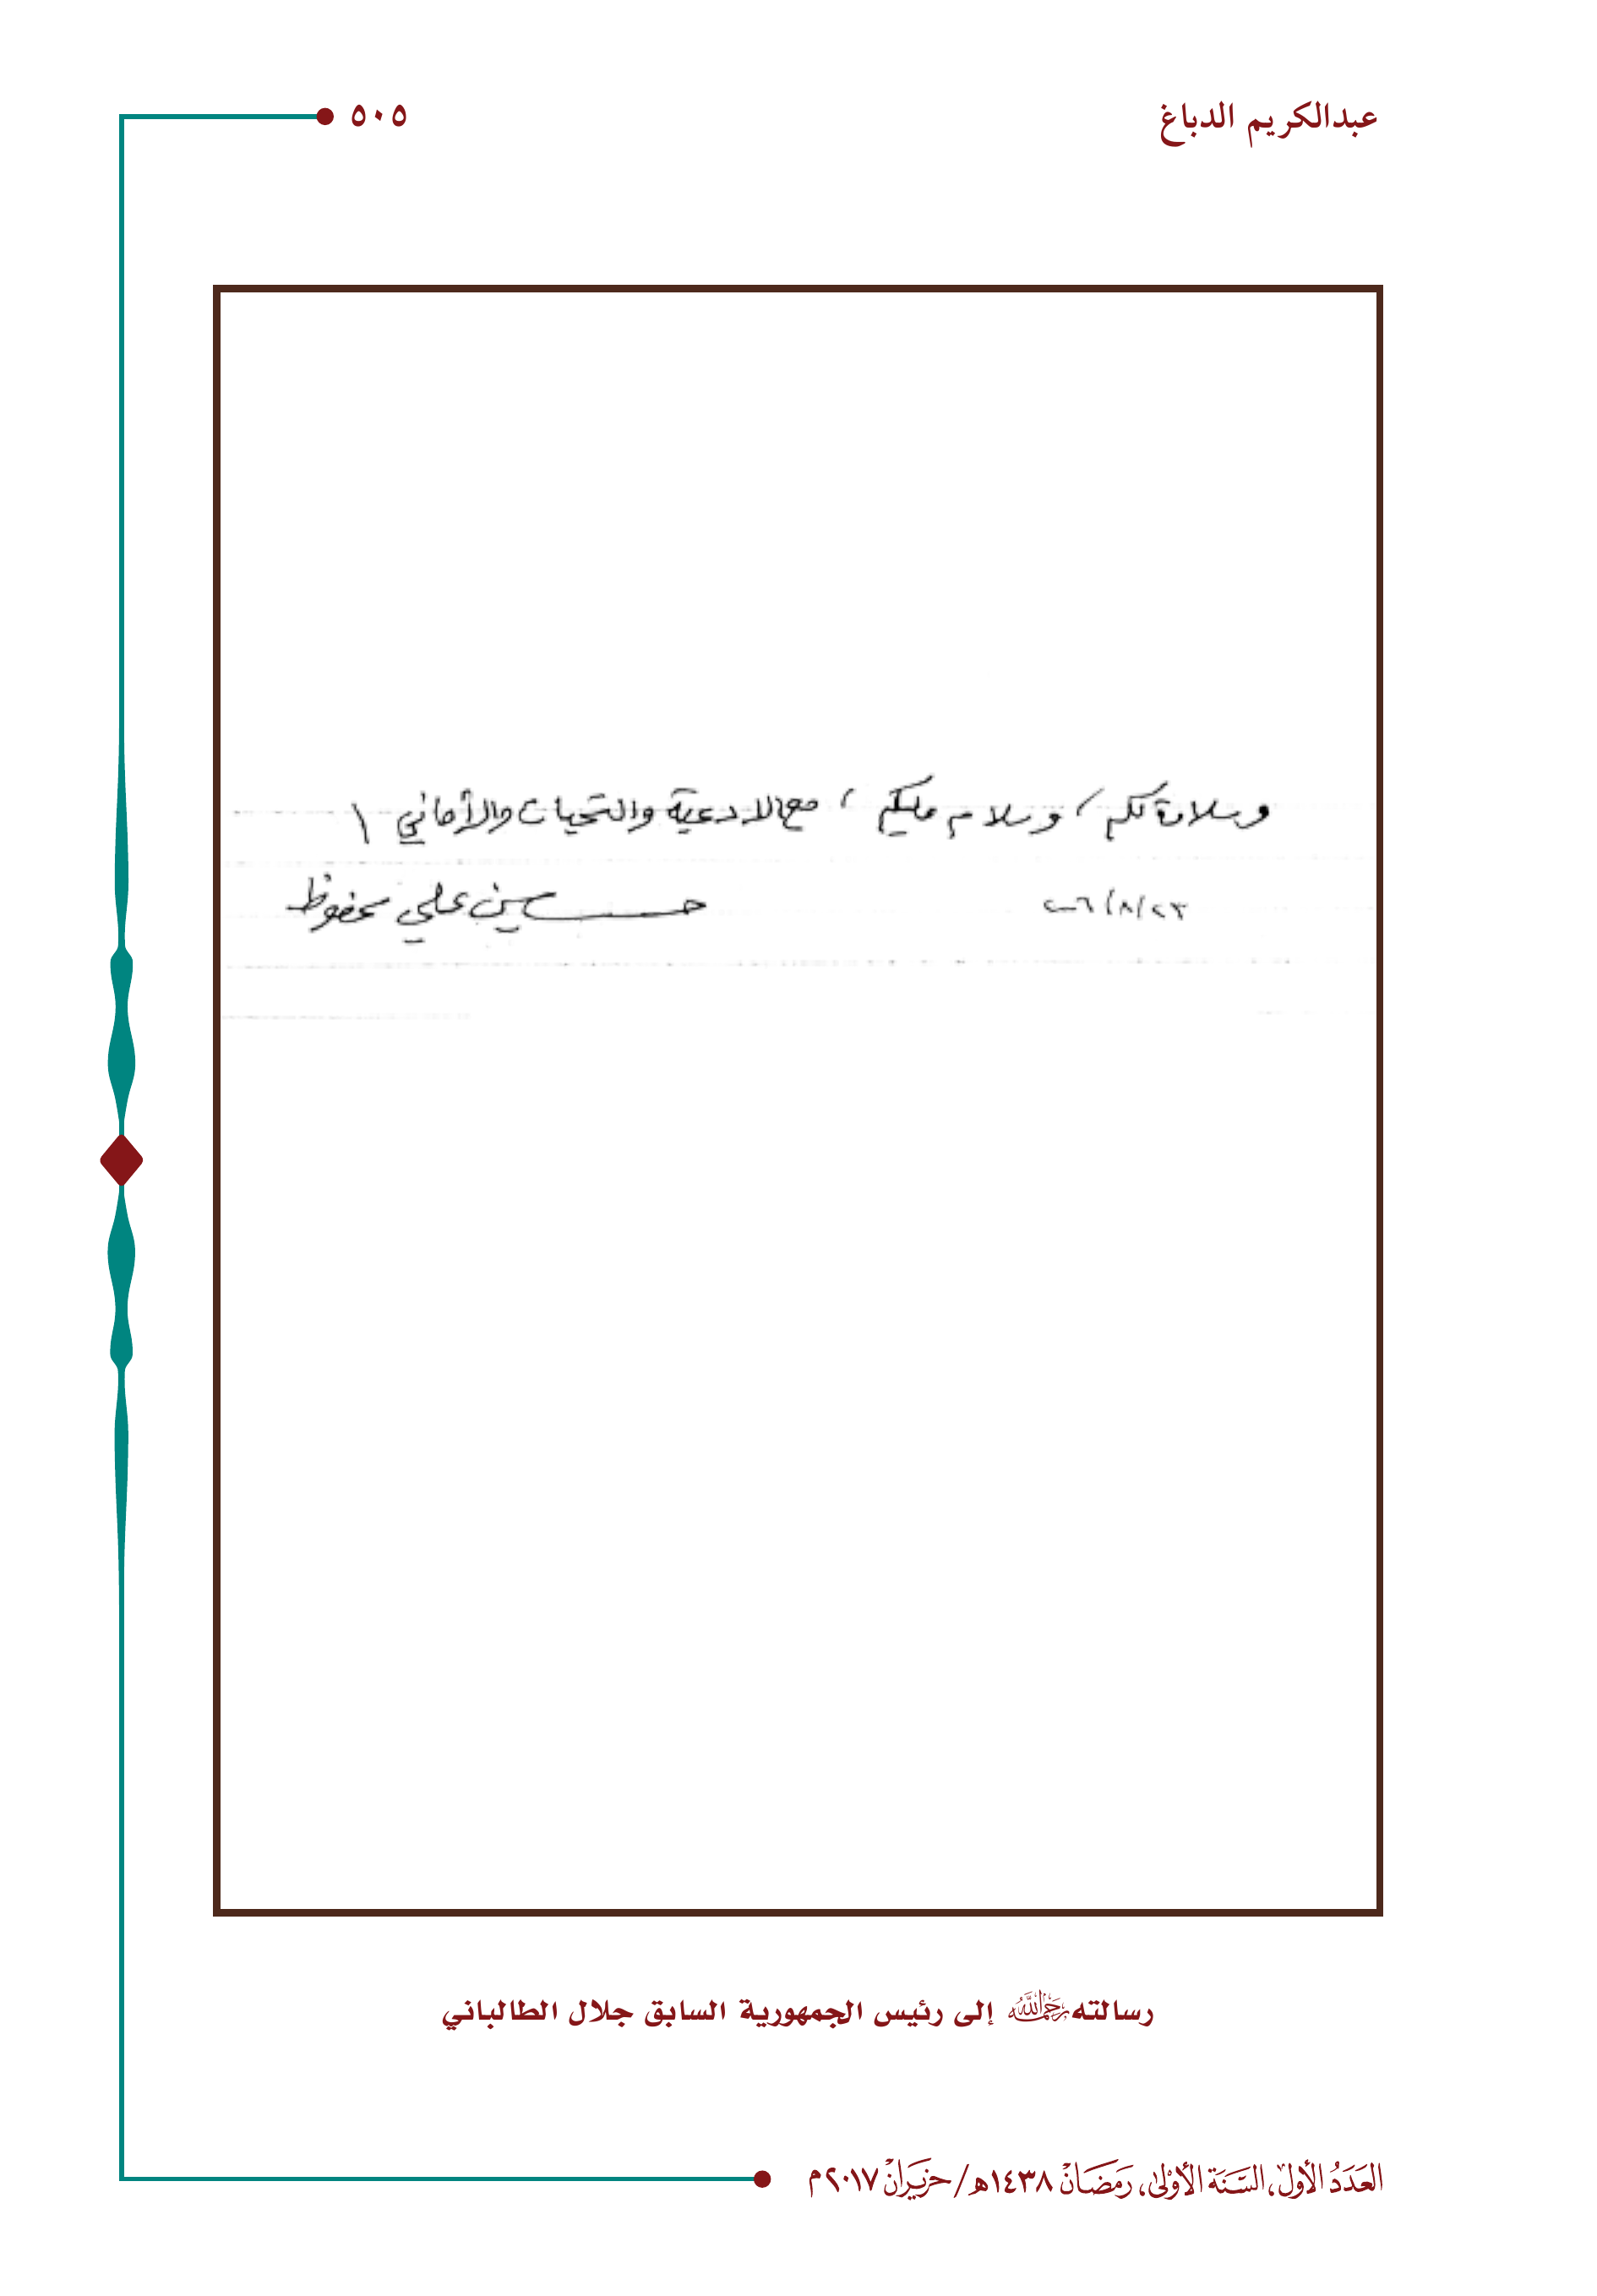 عبدالكريم الدباغ
٥٠٥
وسلامة لكم / وسلام عليكم ، مع الادعية والتحيات والأماني \
٢٠٠٦/٨/٢٣
حسين علي محفوظ
رسالته رحمه الله إلى رئيس الجمهورية السابق جلال الطالباني
العَدَدُ الأولُ، السَّنَة الأوْلى، رَمَضَانْ ١٤٣٨ه/حزيَرانْ ٢٠١٧م